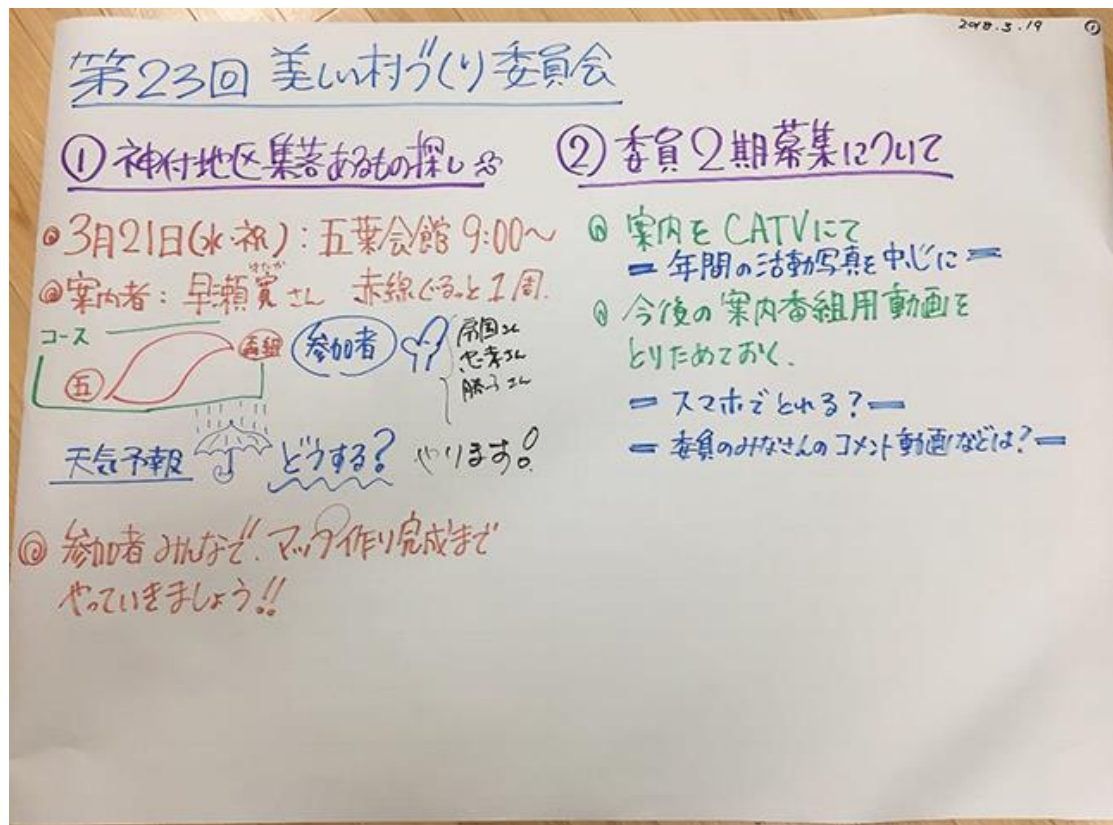 2018.3.19 ①
第23回 美しい村づくり委員会
① 神付地区集落あるもの探し
◎3月21日(水・祝):五葉会館 9:00〜
◎案内者:早瀬寛さん 赤線ぐるっと1周.
コース
五
参加者
忠孝さん
勝子さん
天気予報 どうする? やります!
◎ 参加者みんなで、マップ作り完成まで
やっていきましょう!!
② 委員2期募集について
◎ 案内をCATVにて
= 年間の活動写真を中心に =
◎ 今後の案内番組用動画を
とりためておく.
= スマホでとれる? =
= 委員のみなさんのコメント動画などは? =